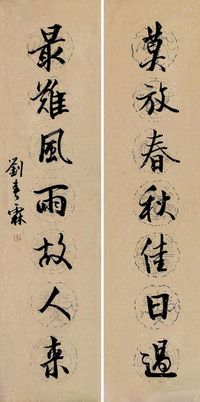 莫放春秋佳日過
最難風雨故人来
劉春霖